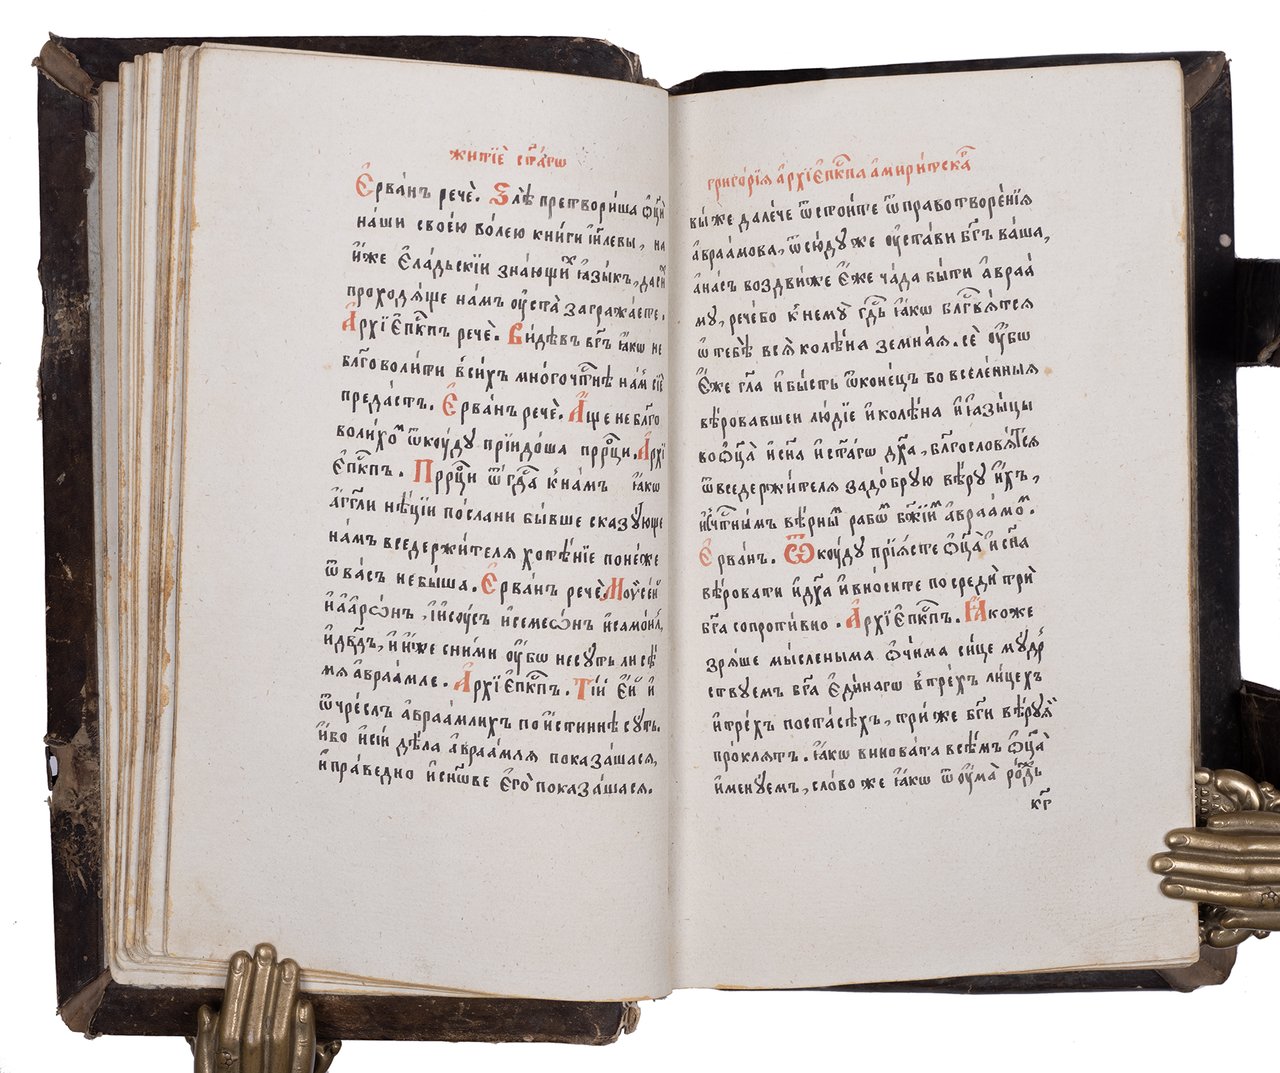 житїѐ ст҃а́гѡ
Е҆рва́нъ речѐ. Ѕлѣ̀ претвори́ша ѻ҆ц҃ы̀
на́ши свое́ю во́лею кни́ги і҆и҃левы, на
и҆́же є҆ла́дьскїи зна́ющиⷨ ꙗ҆зы́къ, да си́
проходѧ́ще на́мъ ᲂу҆ста̀ загражда́ете.
А҆рхїє҆пⷭ҇кпъ речѐ. Ви́дѣвъ бг҃ъ ꙗ҆́кѡ не
бл҃говоли́ти в си́хъ многочтⷭ҇нѣ на́мъ сїѐ
преда́стъ. Е҆рва́нъ речѐ. А҆́ще не бл҃го
воли́хоⷨ ѿкꙋ́дꙋ прїидо́ша прⷪ҇рцы. А҆рхї
є҆пⷭ҇кпъ. Прⷪ҇рцы ѿ гдⷭ҇а к на́мъ ꙗ҆́кѡ
а҆́гг҃ли нѣ́цїи по́слани бы́вше сказꙋ́юще
на́мъ вседержи́телѧ хотѣ́нїе поне́же
ѿ ва́съ не бы́ша. Е҆рва́нъ речѐ. Мо́ѵсей
и҆ а҆арѡ́нъ, і҆исꙋ́съ и҆ семеѡ́нъ и҆ само́илъ,
и҆ дв҃дъ, и҆ и҆̀же с ни́ми ᲂу҆́бѡ не сꙋ́ть ли сѣ́
мѧ а҆враа́мле. А҆рхїє҆пⷭ҇кпъ. Ті́и є҆́й и҆
ѿ чре́слъ а҆враа́млихъ по и҆́стиннѣ сꙋ́ть.
и҆́бо и҆ сїи̑ дѣ́ла а҆враа́млѧ показа́шасѧ,
и҆ пра́ведно и҆ сн҃ѡве є҆гѡ̀ показа́шасѧ.
григо́рїѧ а҆рхїє҆пⷭ҇кпа а҆мири́тскаⷢ҇
вы́ же дале́че ѿстоите ѿ правотворе́нїѧ
а҆враа́мова, ѿсю́дꙋ же ᲂу҆ста́ви бг҃ъ ва́ша,
а҆ на́съ воздви́же є҆́же ча́да бы́ти а҆враа́
мꙋ, рече́ бо к немꙋ̀ гдⷭ҇ь ꙗ҆́кѡ блгⷭ҇вѧ́тсѧ
ѡ҆ тебѣ̀ всѧ̑ колѣ́на земна́ѧ. сѐ ᲂу҆́бѡ
є҆́же гл҃а и҆ бы́сть ѿ коне́цъ во вселе́нныѧ
вѣ́ровавшеи лю́дїе и҆ колѣ́на и҆ ꙗ҆зы́цы
во ѻ҆ц҃а̀ и҆ сн҃а и҆ ст҃а́гѡ дх҃а, бл҃гословѧ́тсѧ
ѿ вседержи́телѧ за до́брꙋю вѣ́рꙋ и҆́хъ,
и҆ чтⷭ҇нымъ вѣ́рныⷨ рабѡⷨ бж҃їиⷨ а҆враа́моⷨ.
Е҆рва́нъ. Ѿкꙋ́дꙋ прїѧ́сте ѻ҆ц҃а̀ и҆ сн҃а
вѣ́ровати и҆ дх҃а и҆ вно́сите посредѝ трѝ
бг҃а сопроти́вно. А҆рхїє҆пⷭ҇кпъ. Ꙗ҆́коже
зрѧ́ще мы́сленыма ѻ҆чи́ма си́це мꙋ́др
ствꙋемъ бг҃а є҆ди́наго в трех̾ ли́цехъ
и҆ тре́хъ поста́сѣхъ, трѝ же бг҃и вѣ́рꙋѧ
про́клѧтъ. ꙗ҆́кѡ винова́та всѣ́мъ ѻ҆ц҃а̀
и҆менꙋ́емъ, сло́во же ꙗ҆́кѡ ѿ ᲂу҆ма̀ рождь
кг҃